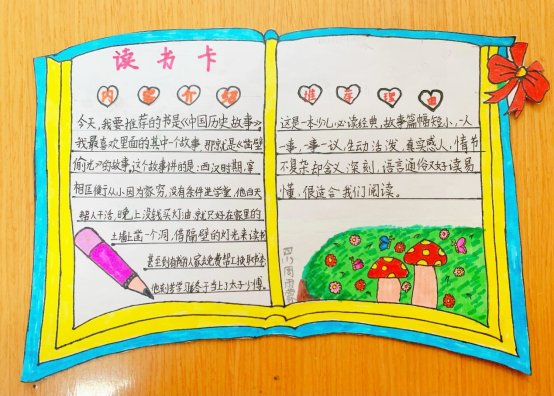 读书卡
内容介绍
今天,我要推荐的书是《中国历史故事》,
我最喜欢里面的其中一个故事,那就是《凿壁
偷光》的故事,这个故事讲的是:西汉时期,宰
相匡衡从小因为家穷,没有条件进学堂,他白天
帮人干活,晚上没钱买灯油,就只好在家里的
土墙上凿一个洞,借隔壁的灯光来读书
甚至到有钱的人家去免费帮工换取书本
学习 当上了太子少傅。
推荐理由
这是一本少儿必读经典,故事篇幅短小,一人
一事,一事一议,生动活泼,真实感人,情节
不复杂却含义深刻,语言通俗又好读易
懂,很适合我们阅读。